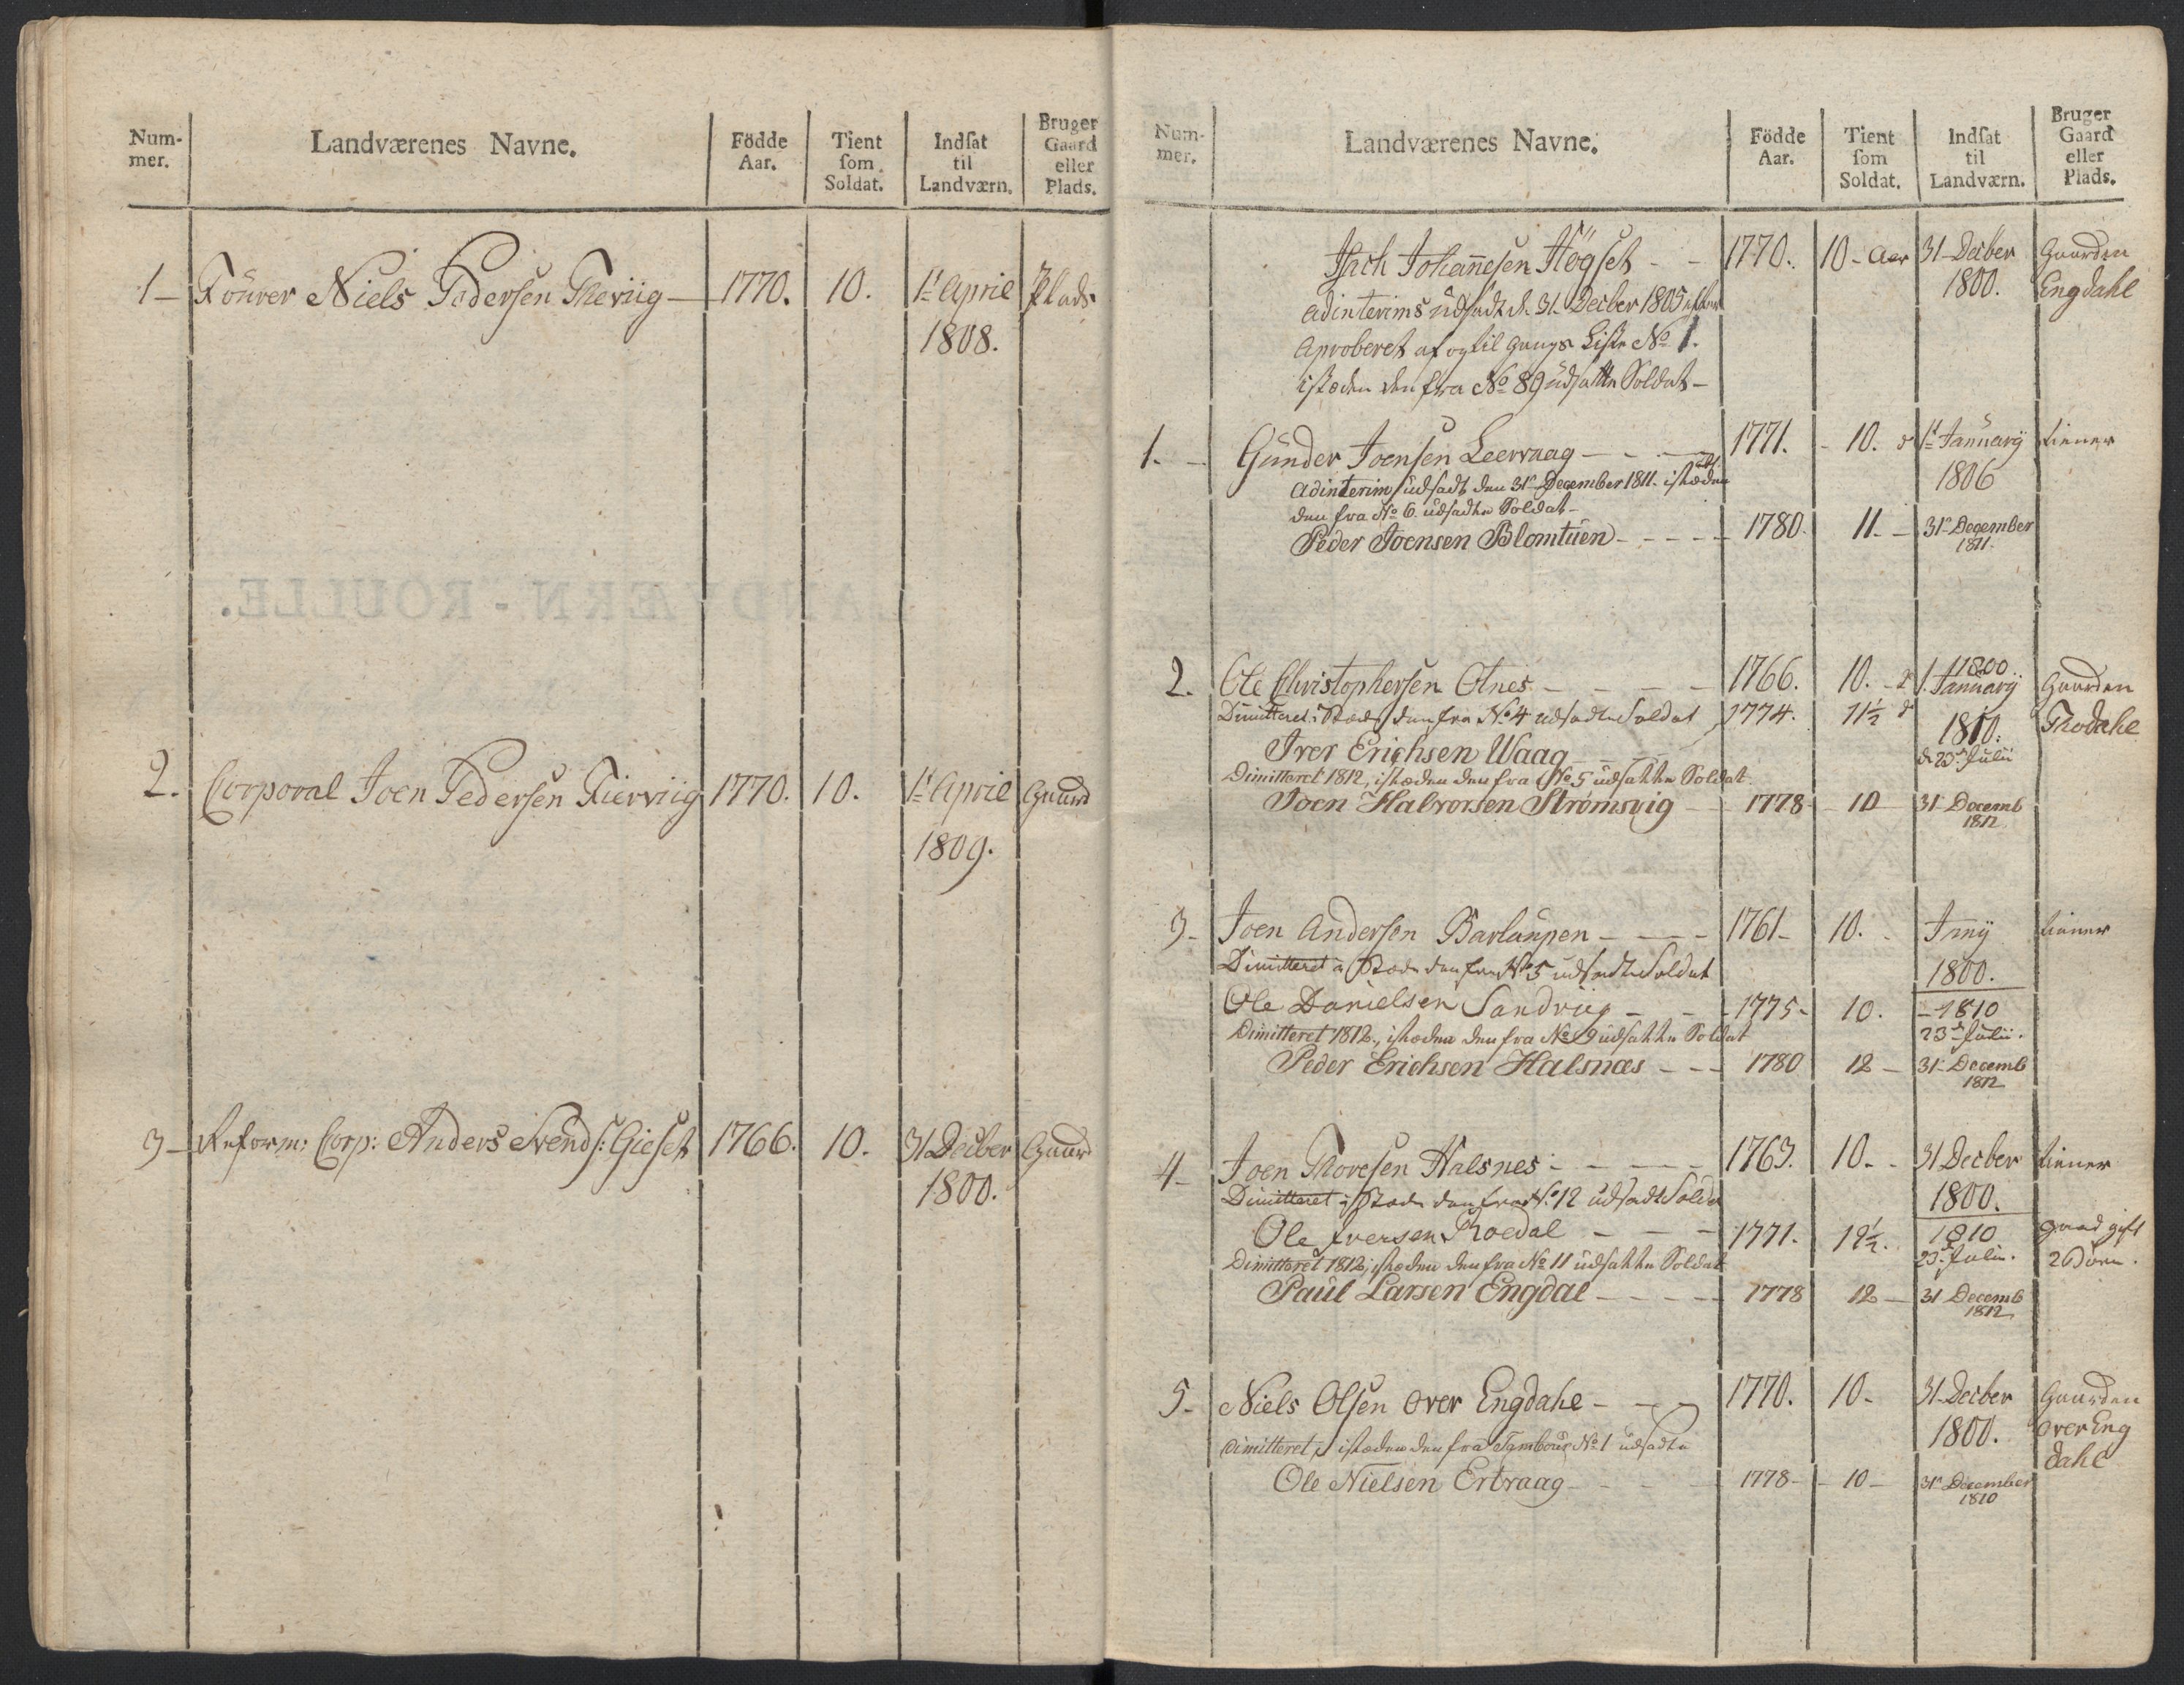 Num-
mer.
Landværenes Navne.
Födde
Aar.
Tient
som
Soldat.
Indsat
til
Landværn.
Bruger
Gaard
eller
Plads.
1 - Fourer Niels Pedersen Theviig - 1770. 10. 1te April Plads
1808.
2. Corporal Joen Pedersen Kierviig 1770. 10. 1te April Gaard
1809.
3 - Reform: Corp: Anders Svends: Gieset 1766. 10. 31 Decber Gaard
1800.
Num-
mer.
Landværenes Navne.
Födde
Aar.
Tient
som
Soldat.
Indsat
til
Landværn.
Bruger
Gaard
eller
Plads.
Isach Johannesen Högset - - 1770. 10 - Aar 31 Decber Gaarden
1800. Engdahl
adinterims udsadt d. 31 Decber 1805
Aproberet af og til Gangs Liste No 1.
isteden den fra No 89 udsatte Soldat -
1. - Gunder Joensen Leervaag - - - 1771. - 10. 1te Januarij tiener
1806
Adinterim udsadt den 31te December 1811. isteden
den fra No 6. udsadte Soldat -
Peder Joensen Blomtuen - - - - - 1780. 11. - 31te December
1811.
2. Ole Christophersen Otnes - - - - 1766. 10. - 1. Januarij Gaarden
1800.
Dimitteret i Stæde den fra No 4 udsadte Soldat 1774. 11½ 1810. Thodahl
Iver Erichsen Waag d. 23de Julii
Dimitteret 1812, isteden den fra No 5 udsatte Soldat
Joen Halvorsen Strømsvig - 1778 - 10 31 Decemb
1812.
3 - Joen Andersen Barlaupen - - - - 1761 - 10. - tiener
1800.
Dimitteret i Stæde den fra No 5 udsadte Soldat
Ole Danielsen Sandviig - - - 1775 - 10. - 1810
23de Julii.
Dimitteret 1812, isteden den fra No 9 udsatte Soldat
Peder Erichsen Halsnæs - - - 1780 12 - 31 Decemb
1812
4 - Joen Thoresen Halsnes - - - - - 1763. 10. - 31 Decber tiener
1800.
Dimitteret i Stæde den fra No. 12 udsadt Soldat
Ole Iversen Roedal - - - 1771. 12½. 1810 Gaard gift
23de Julii. 2 Børn.
Dimitteret 1812, isteden den fra No 11 udsatte Soldat
Paul Larsen Engdal - - - - - 1778 12 - 31 Decemb
1812
5 - Niels Olsen Over Engdahl - - - 1770. 10 - 31 Decber Gaarden
1800. Over Eng
dahl
Dimitteret, isteden den fra Tambour No 1 udsadte
Ole Nielsen Ertvaag - - - - 1778 - 10 - 31te December
1810